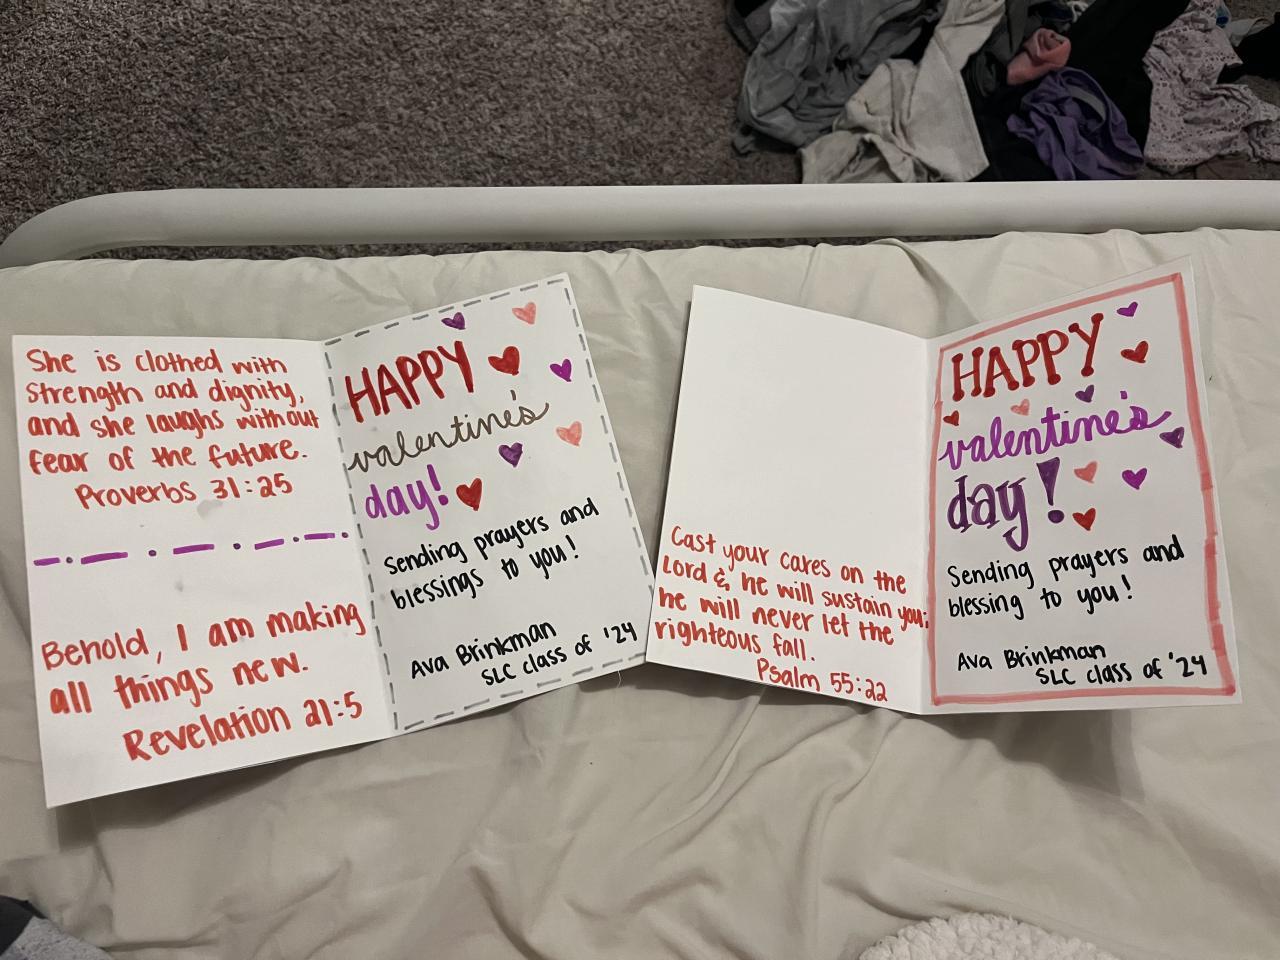 She is clothed with
strength and dignity,
and she laughs without
fear of the future.
Proverbs 31:25
Behold, I am making
all things new.
Revelation 21:5
HAPPY
valentine's
day!
Sending prayers and
blessings to you!
Ava Brinkman
SLC class of '24
Cast your cares on the
Lord & he will sustain you;
he will never let the
righteous fall.
Psalm 55:22
HAPPY
valentine's
day!
Sending prayers and
blessing to you!
Ava Brinkman
SLC class of '24